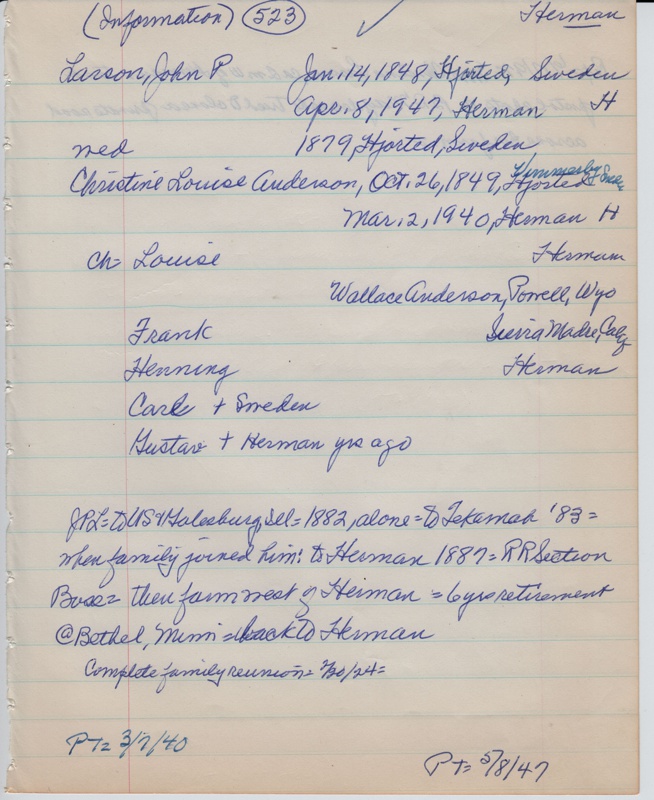 (Information) 523 Herman
Larson, John P Jan. 14, 1848, Hjorted, Sweden
Apr. 8, 1947, Herman H
wed 1879, Hjorted, Sweden
Vimmerby, Swed
Christine Louise Anderson, Oct. 26, 1849, Hjorted
Mar. 2, 1940, Herman H
Ch= Louise Herman
Wallace Anderson, Powell, Wyo
Frank Sierra Madre, Calif
Henning Herman
Carl + Sweden
Gustav + Herman yrs ago
JPL= to US & Galesburg, Ill= 1882, alone= to Tekamah '83=
when family joined him: to Herman 1887= RR Section
Boss= then farm west of Herman = 6 yrs retirement
@ Bethel, Minn = back to Herman
Complete family reunion= 7/20/24=
PT= 3/7/40
PT= 5/8/47